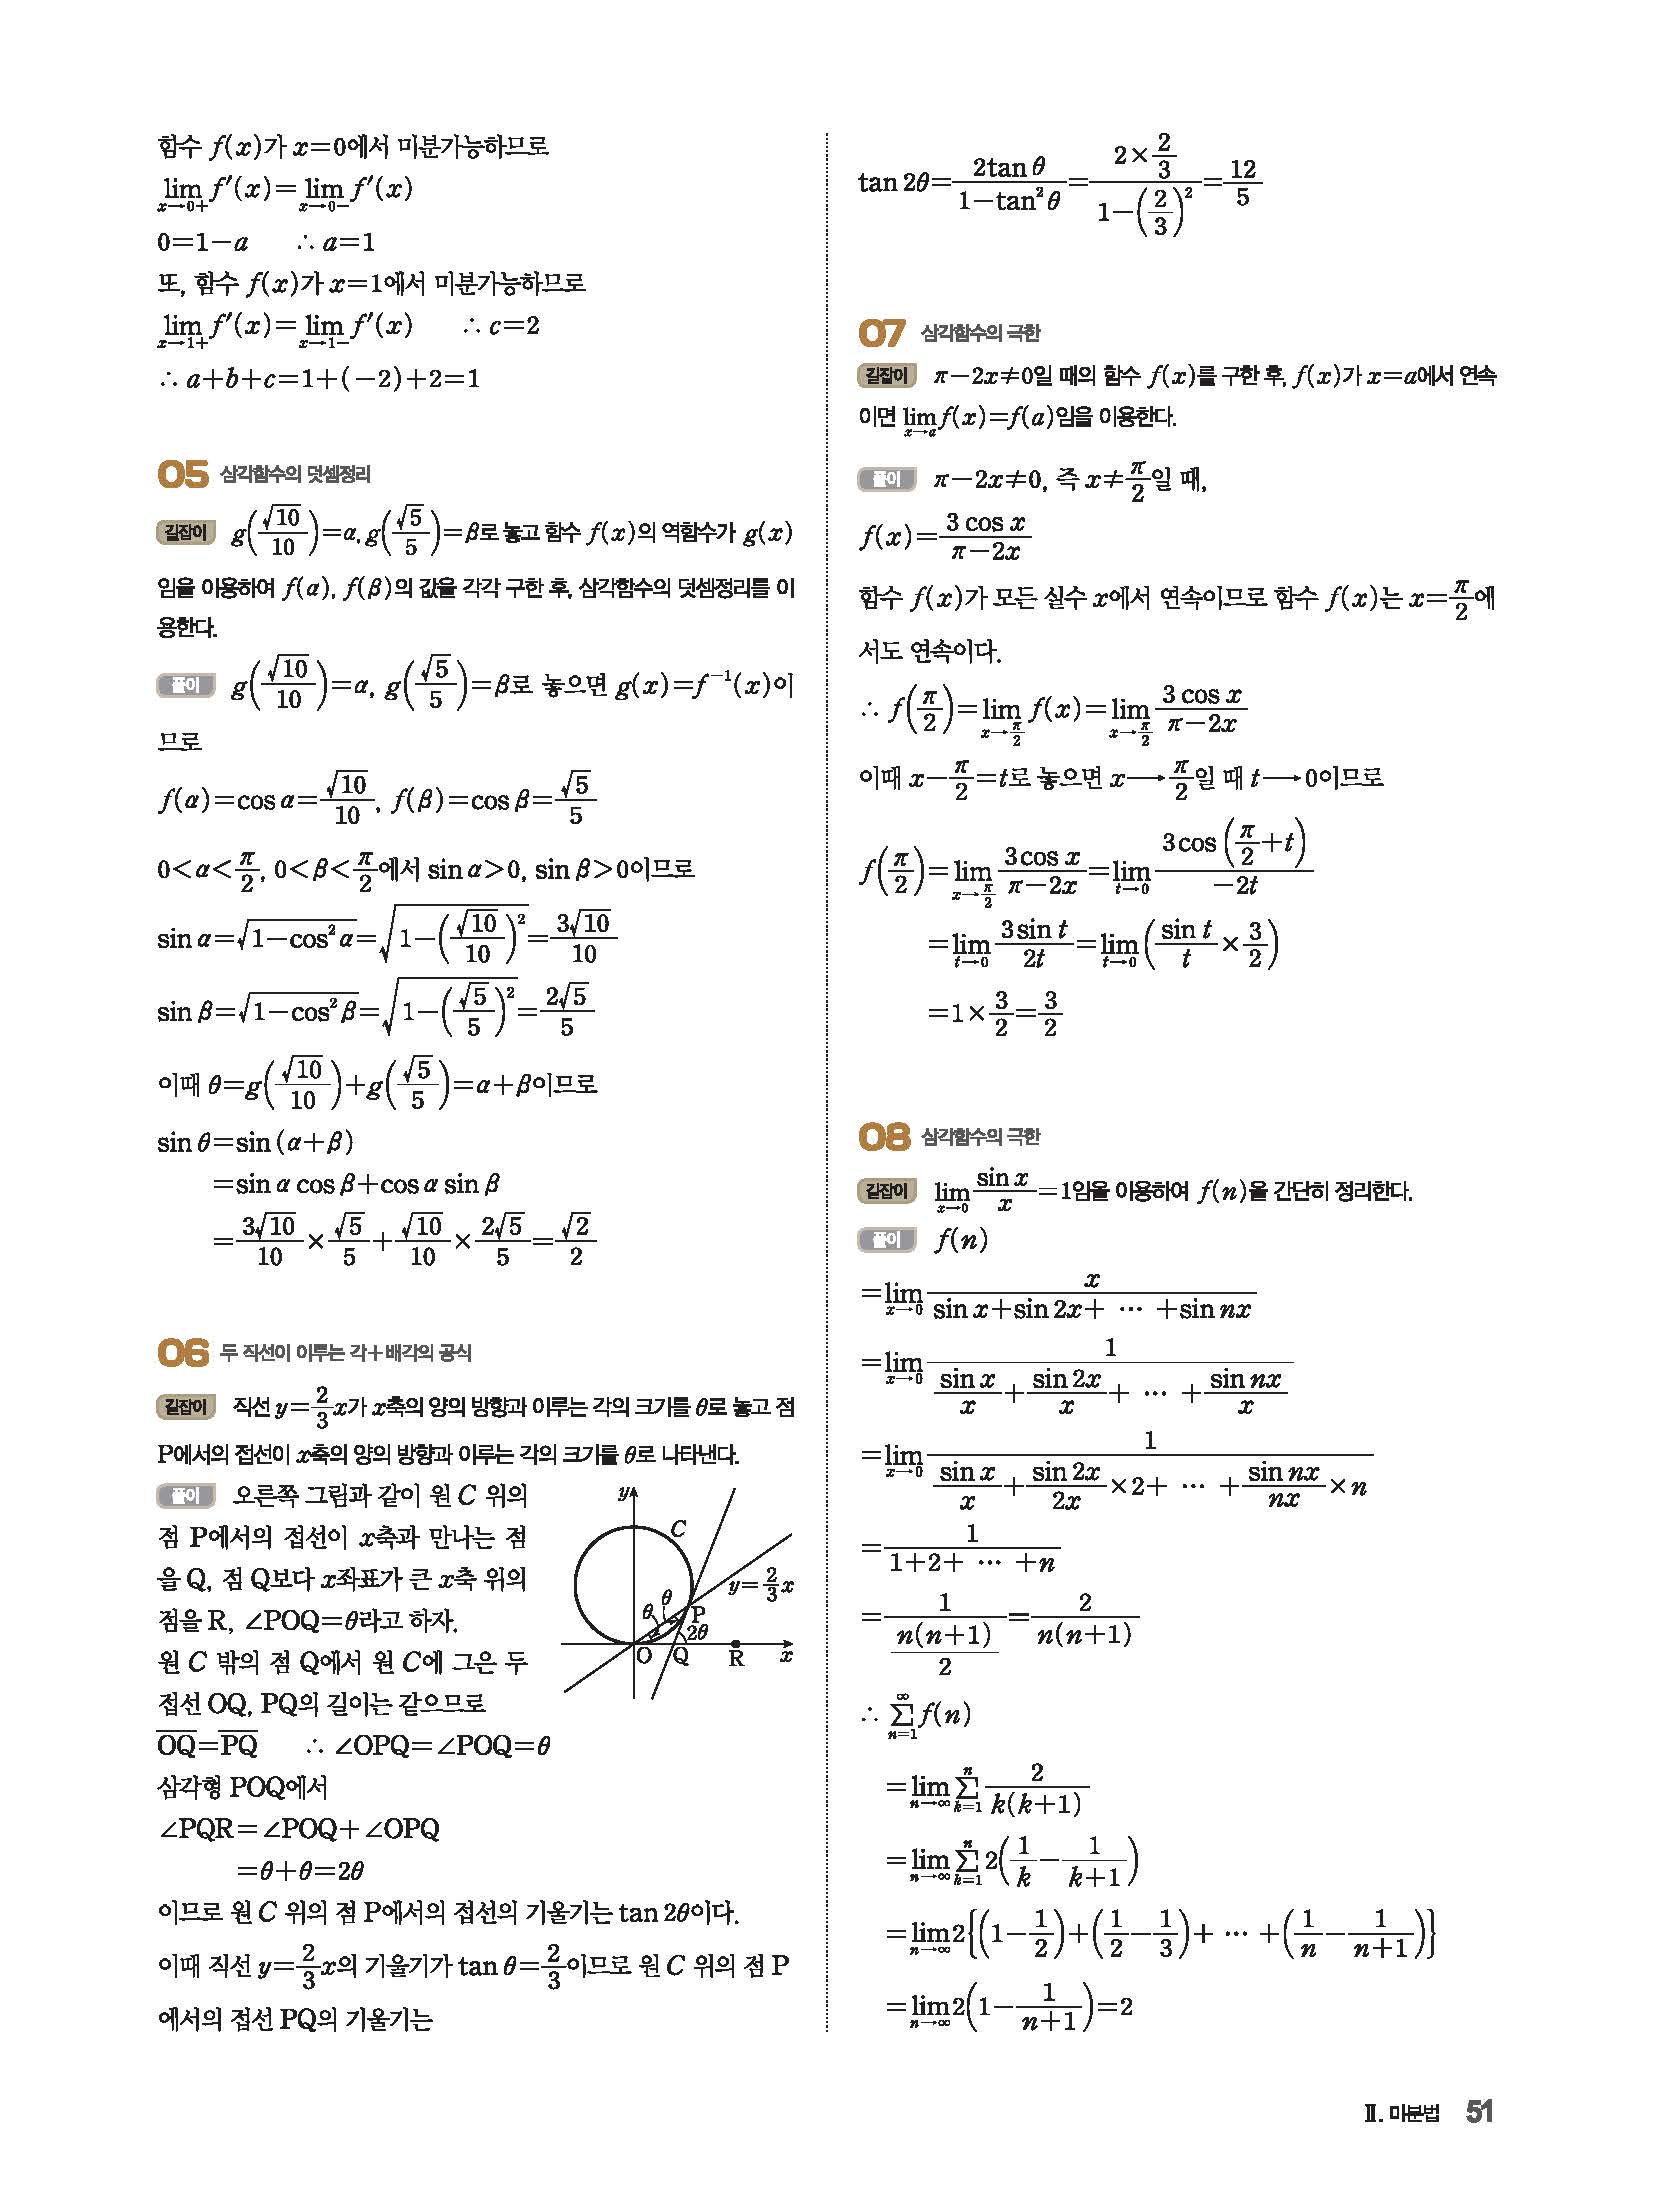 함수 f(x)가 x=0에서 미분가능하므로
lim_{x→0+} f′(x)=lim_{x→0-} f′(x)
0=1-a ∴ a=1
또, 함수 f(x)가 x=1에서 미분가능하므로
lim_{x→1+} f′(x)=lim_{x→1-} f′(x) ∴ c=2
∴ a+b+c=1+(-2)+2=1
05 삼각함수의 덧셈정리
길잡이 g(√10/10)=α, g(√5/5)=β로 놓고 함수 f(x)의 역함수가 g(x)
임을 이용하여 f(α), f(β)의 값을 각각 구한 후, 삼각함수의 덧셈정리를 이
용한다.
풀이 g(√10/10)=α, g(√5/5)=β로 놓으면 g(x)=f⁻¹(x)이
므로
f(α)=cos α=√10/10, f(β)=cos β=√5/5
0<α<π/2, 0<β<π/2에서 sin α>0, sin β>0이므로
sin α=√(1-cos² α)=√(1-(√10/10)²)=3√10/10
sin β=√(1-cos² β)=√(1-(√5/5)²)=2√5/5
이때 θ=g(√10/10)+g(√5/5)=α+β이므로
sin θ=sin (α+β)
=sin α cos β+cos α sin β
=3√10/10×√5/5+√10/10×2√5/5=√2/2
06 두 직선이 이루는 각+배각의 공식
길잡이 직선 y=2/3x가 x축의 양의 방향과 이루는 각의 크기를 θ로 놓고 점
P에서의 접선이 x축의 양의 방향과 이루는 각의 크기를 θ로 나타낸다.
풀이 오른쪽 그림과 같이 원 C 위의
점 P에서의 접선이 x축과 만나는 점
을 Q, 점 Q보다 x좌표가 큰 x축 위의
점을 R, ∠POQ=θ라고 하자.
원 C 밖의 점 Q에서 원 C에 그은 두
접선 OQ, PQ의 길이는 같으므로
y
C
y=2/3x
θ
θ
P
2θ
O Q R x
OQ=PQ ∴ ∠OPQ=∠POQ=θ
삼각형 POQ에서
∠PQR=∠POQ+∠OPQ
=θ+θ=2θ
이므로 원 C 위의 점 P에서의 접선의 기울기는 tan 2θ이다.
이때 직선 y=2/3x의 기울기가 tan θ=2/3이므로 원 C 위의 점 P
에서의 접선 PQ의 기울기는
tan 2θ=2tan θ/(1-tan² θ)=(2×2/3)/(1-(2/3)²)=12/5
07 삼각함수의 극한
길잡이 π-2x≠0일 때의 함수 f(x)를 구한 후, f(x)가 x=a에서 연속
이면 lim_{x→a} f(x)=f(a)임을 이용한다.
풀이 π-2x≠0, 즉 x≠π/2일 때,
f(x)=3 cos x/(π-2x)
함수 f(x)가 모든 실수 x에서 연속이므로 함수 f(x)는 x=π/2에
서도 연속이다.
∴ f(π/2)=lim_{x→π/2} f(x)=lim_{x→π/2} 3 cos x/(π-2x)
이때 x-π/2=t로 놓으면 x→π/2일 때 t→0이므로
f(π/2)=lim_{x→π/2} 3cos x/(π-2x)=lim_{t→0} 3cos (π/2+t)/(-2t)
=lim_{t→0} 3sin t/2t=lim_{t→0} (sin t/t×3/2)
=1×3/2=3/2
08 삼각함수의 극한
길잡이 lim_{x→0} sin x/x=1임을 이용하여 f(n)을 간단히 정리한다.
풀이 f(n)
=lim_{x→0} x/(sin x+sin 2x+ ⋯ +sin nx)
=lim_{x→0} 1/(sin x/x+sin 2x/x+ ⋯ +sin nx/x)
=lim_{x→0} 1/(sin x/x+sin 2x/2x×2+ ⋯ +sin nx/nx×n)
=1/(1+2+ ⋯ +n)
=1/(n(n+1)/2)=2/n(n+1)
∴ Σ_{n=1}^{∞} f(n)
=lim_{n→∞} Σ_{k=1}^{n} 2/k(k+1)
=lim_{n→∞} Σ_{k=1}^{n} 2(1/k-1/(k+1))
=lim_{n→∞} 2{(1-1/2)+(1/2-1/3)+ ⋯ +(1/n-1/(n+1))}
=lim_{n→∞} 2(1-1/(n+1))=2
Ⅱ. 미분법 51